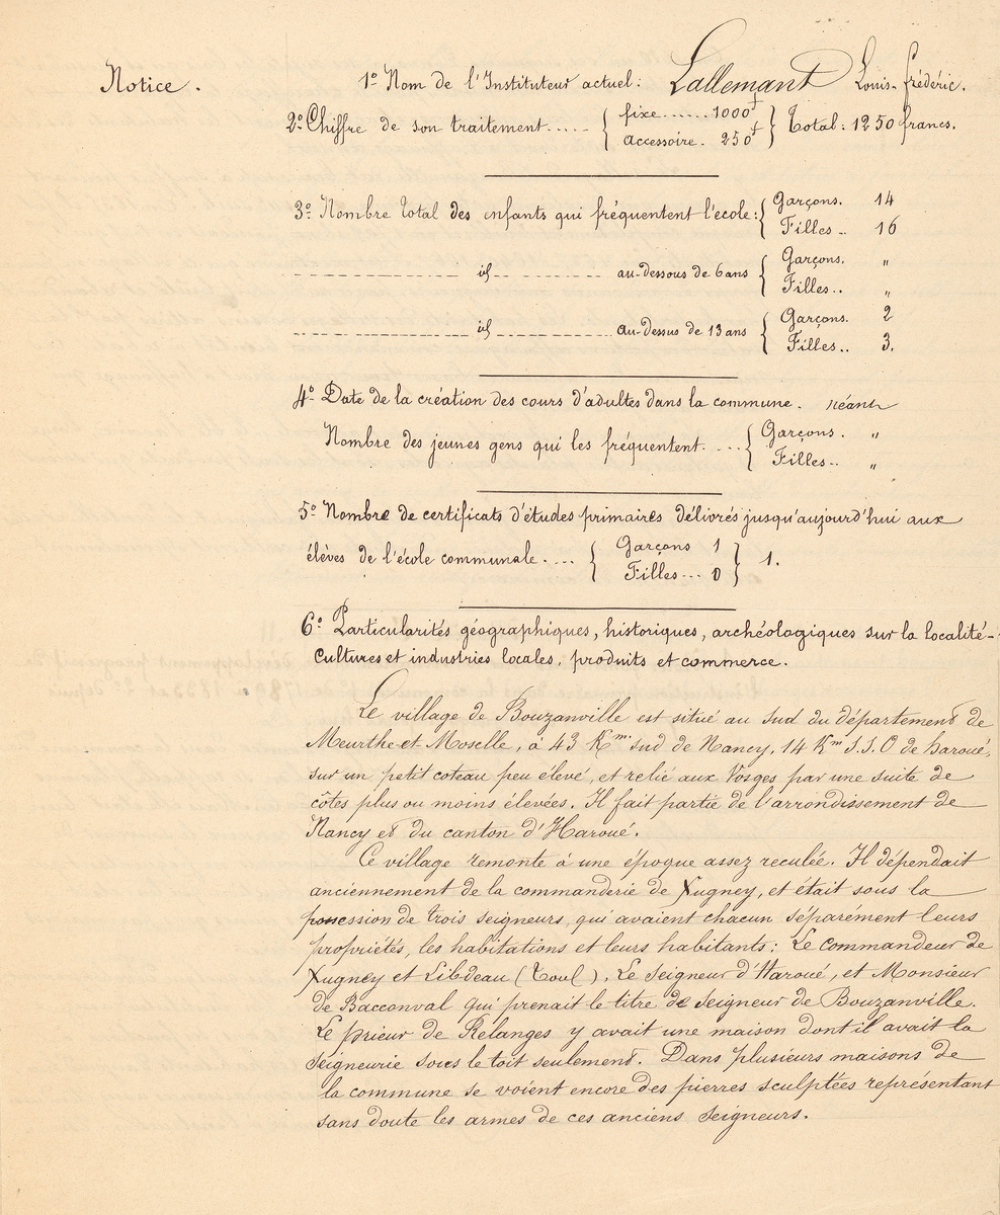 Notice.
1º Nom de l'Instituteur actuel: Lallemant Louis-Frédéric.
2º Chiffre de son traitement..... { fixe......1000f
accessoire. 250f } Total: 1250 francs.
3º Nombre total des enfants qui fréquentent l'école: { Garçons. 14
Filles.. 16
id au-dessous de 6 ans { Garçons. "
Filles.. "
id au-dessus de 13 ans { Garçons. 2
Filles.. 3.
4º Date de la création des cours d'adultes dans la commune. néant
Nombre des jeunes gens qui les fréquentent. ... { Garçons. "
Filles.. "
5º Nombre de certificats d'études primaires délivrés jusqu'aujourd'hui aux
élèves de l'école communale.... { Garçons 1
Filles... 0 } 1.
6º Particularités géographiques, historiques, archéologiques sur la localité-
cultures et industries locales, produits et commerce.
Le village de Bouzanville est situé au sud du département de
Meurthe-et-Moselle, à 43 Km. sud de Nancy, 14 Km S.S.O de haroué,
sur un petit coteau peu élevé, et relié aux Vosges par une suite de
côtes plus ou moins élevées. Il fait partie de l'arrondissement de
Nancy et du canton d'Haroué.
Ce village remonte à une époque assez reculée. Il dépendait
anciennement de la commanderie de Xugney, et était sous la
possession de trois seigneurs, qui avaient chacun séparément leurs
propriétés, les habitations et leurs habitants: Le commandeur de
Xugney et Libdeau (Toul). Le Seigneur d'Haroué, et Monsieur
de Bacconval qui prenait le titre de Seigneur de Bouzanville.
Le prieur de Relanges y avait une maison dont il avait la
Seigneurie sous le toit seulement. Dans plusieurs maisons de
la commune se voient encore des pierres sculptées représentant
sans doute les armes de ces anciens Seigneurs.